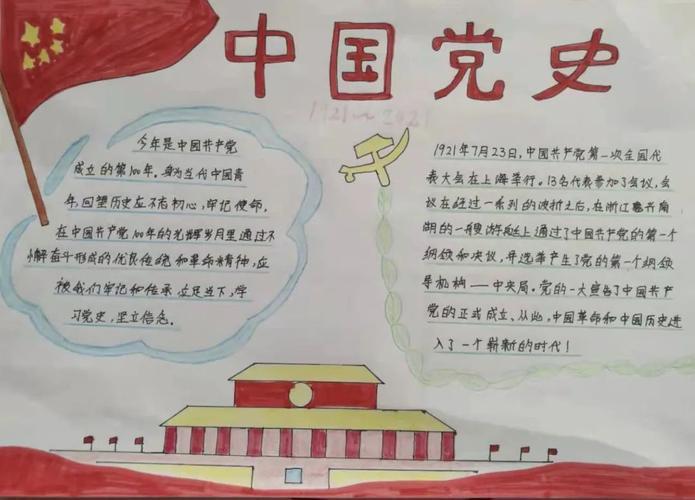 中国党史
1921～2021
今年是中国共产党
成立的第100年。身为当代中国青
年,回望历史应不忘初心,牢记使命,
在中国共产党100年的光辉岁月里通过不
懈奋斗形成的优良传统和革命精神,应
被我们牢记和传承立足当下,学
习党史,坚立信念。
1921年7月23日,中国共产党第一次全国代
表大会在上海举行。13名代表参加了会议,会
议在经过一系列的波折之后,在浙江嘉兴南
湖的一艘游艇上通过了中国共产党的第一个
纲领和决议,并选举产生了党的第一个纲领
导机构——中央局。党的一大宣告了中国共产
党的正式成立、从此,中国革命和中国历史进
入了一个崭新的时代!